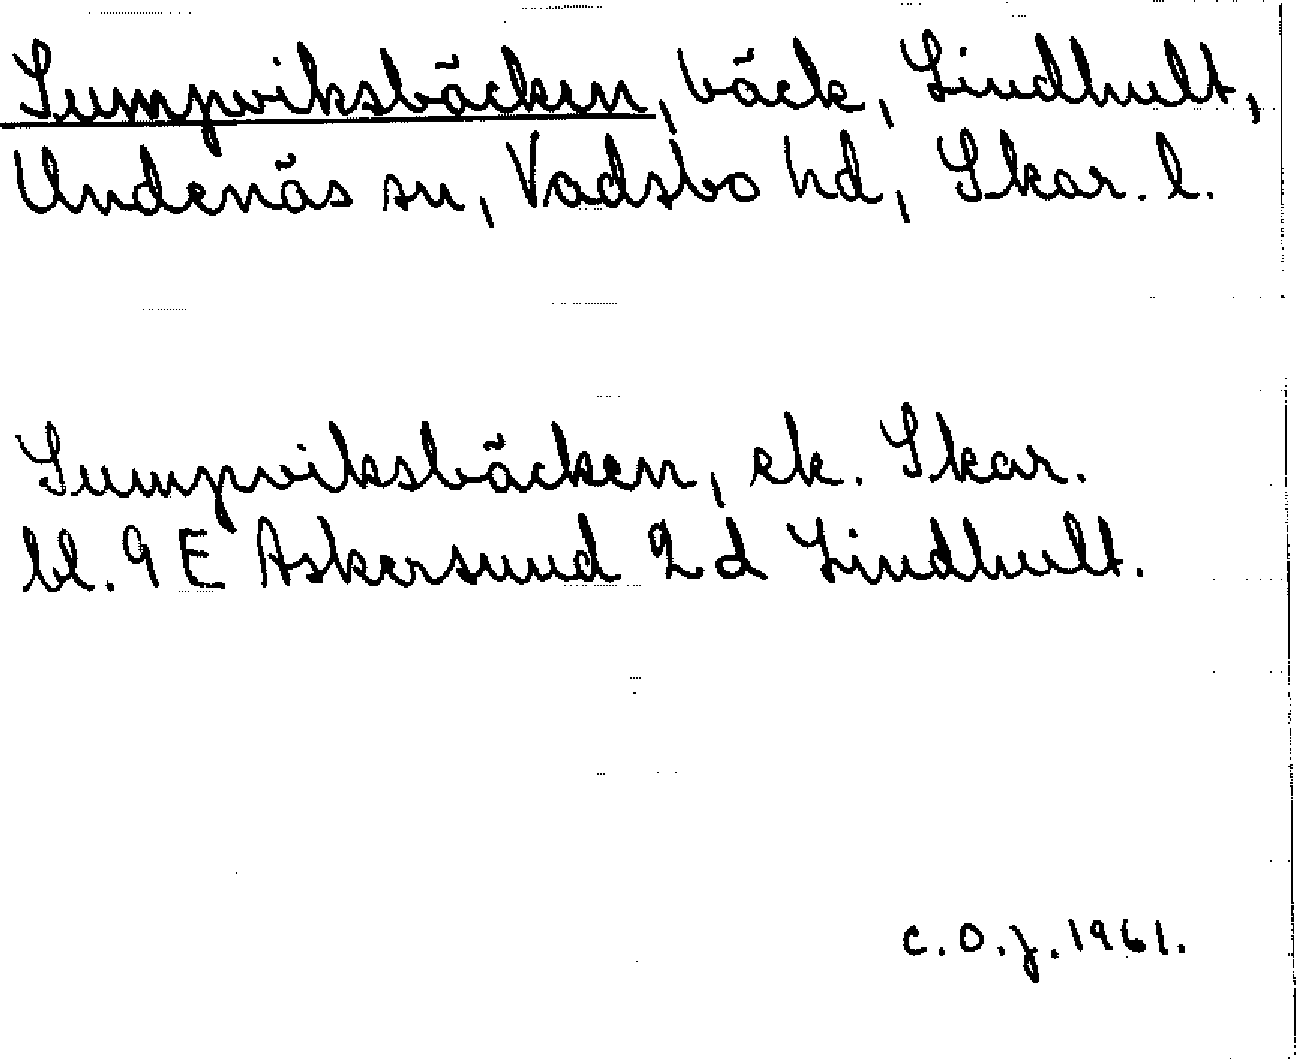 Sumpviksbäcken, bäck, Lindhult,
Undenäs sn, Vadsbo hd, Skar. l.
Sumpviksbäcken, ek. Skar.
bl. 9 E Askersund 2 d Lindhult.
C.O.J. 1961.